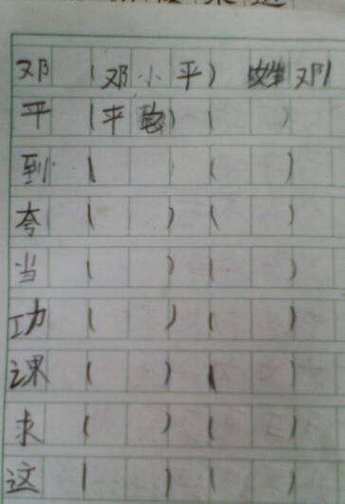 邓（邓小平） 姓邓
平（平 ）（ ）
到（ ）（ ）
夸（ ）（ ）
当（ ）（ ）
功（ ）（ ）
课（ ）（ ）
求（ ）（ ）
这（ ）（ ）